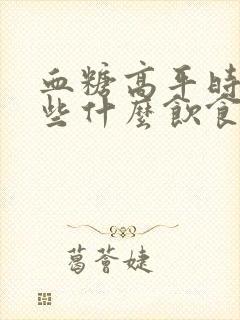 血糖高平時
些什麼飲食
葛薈婕